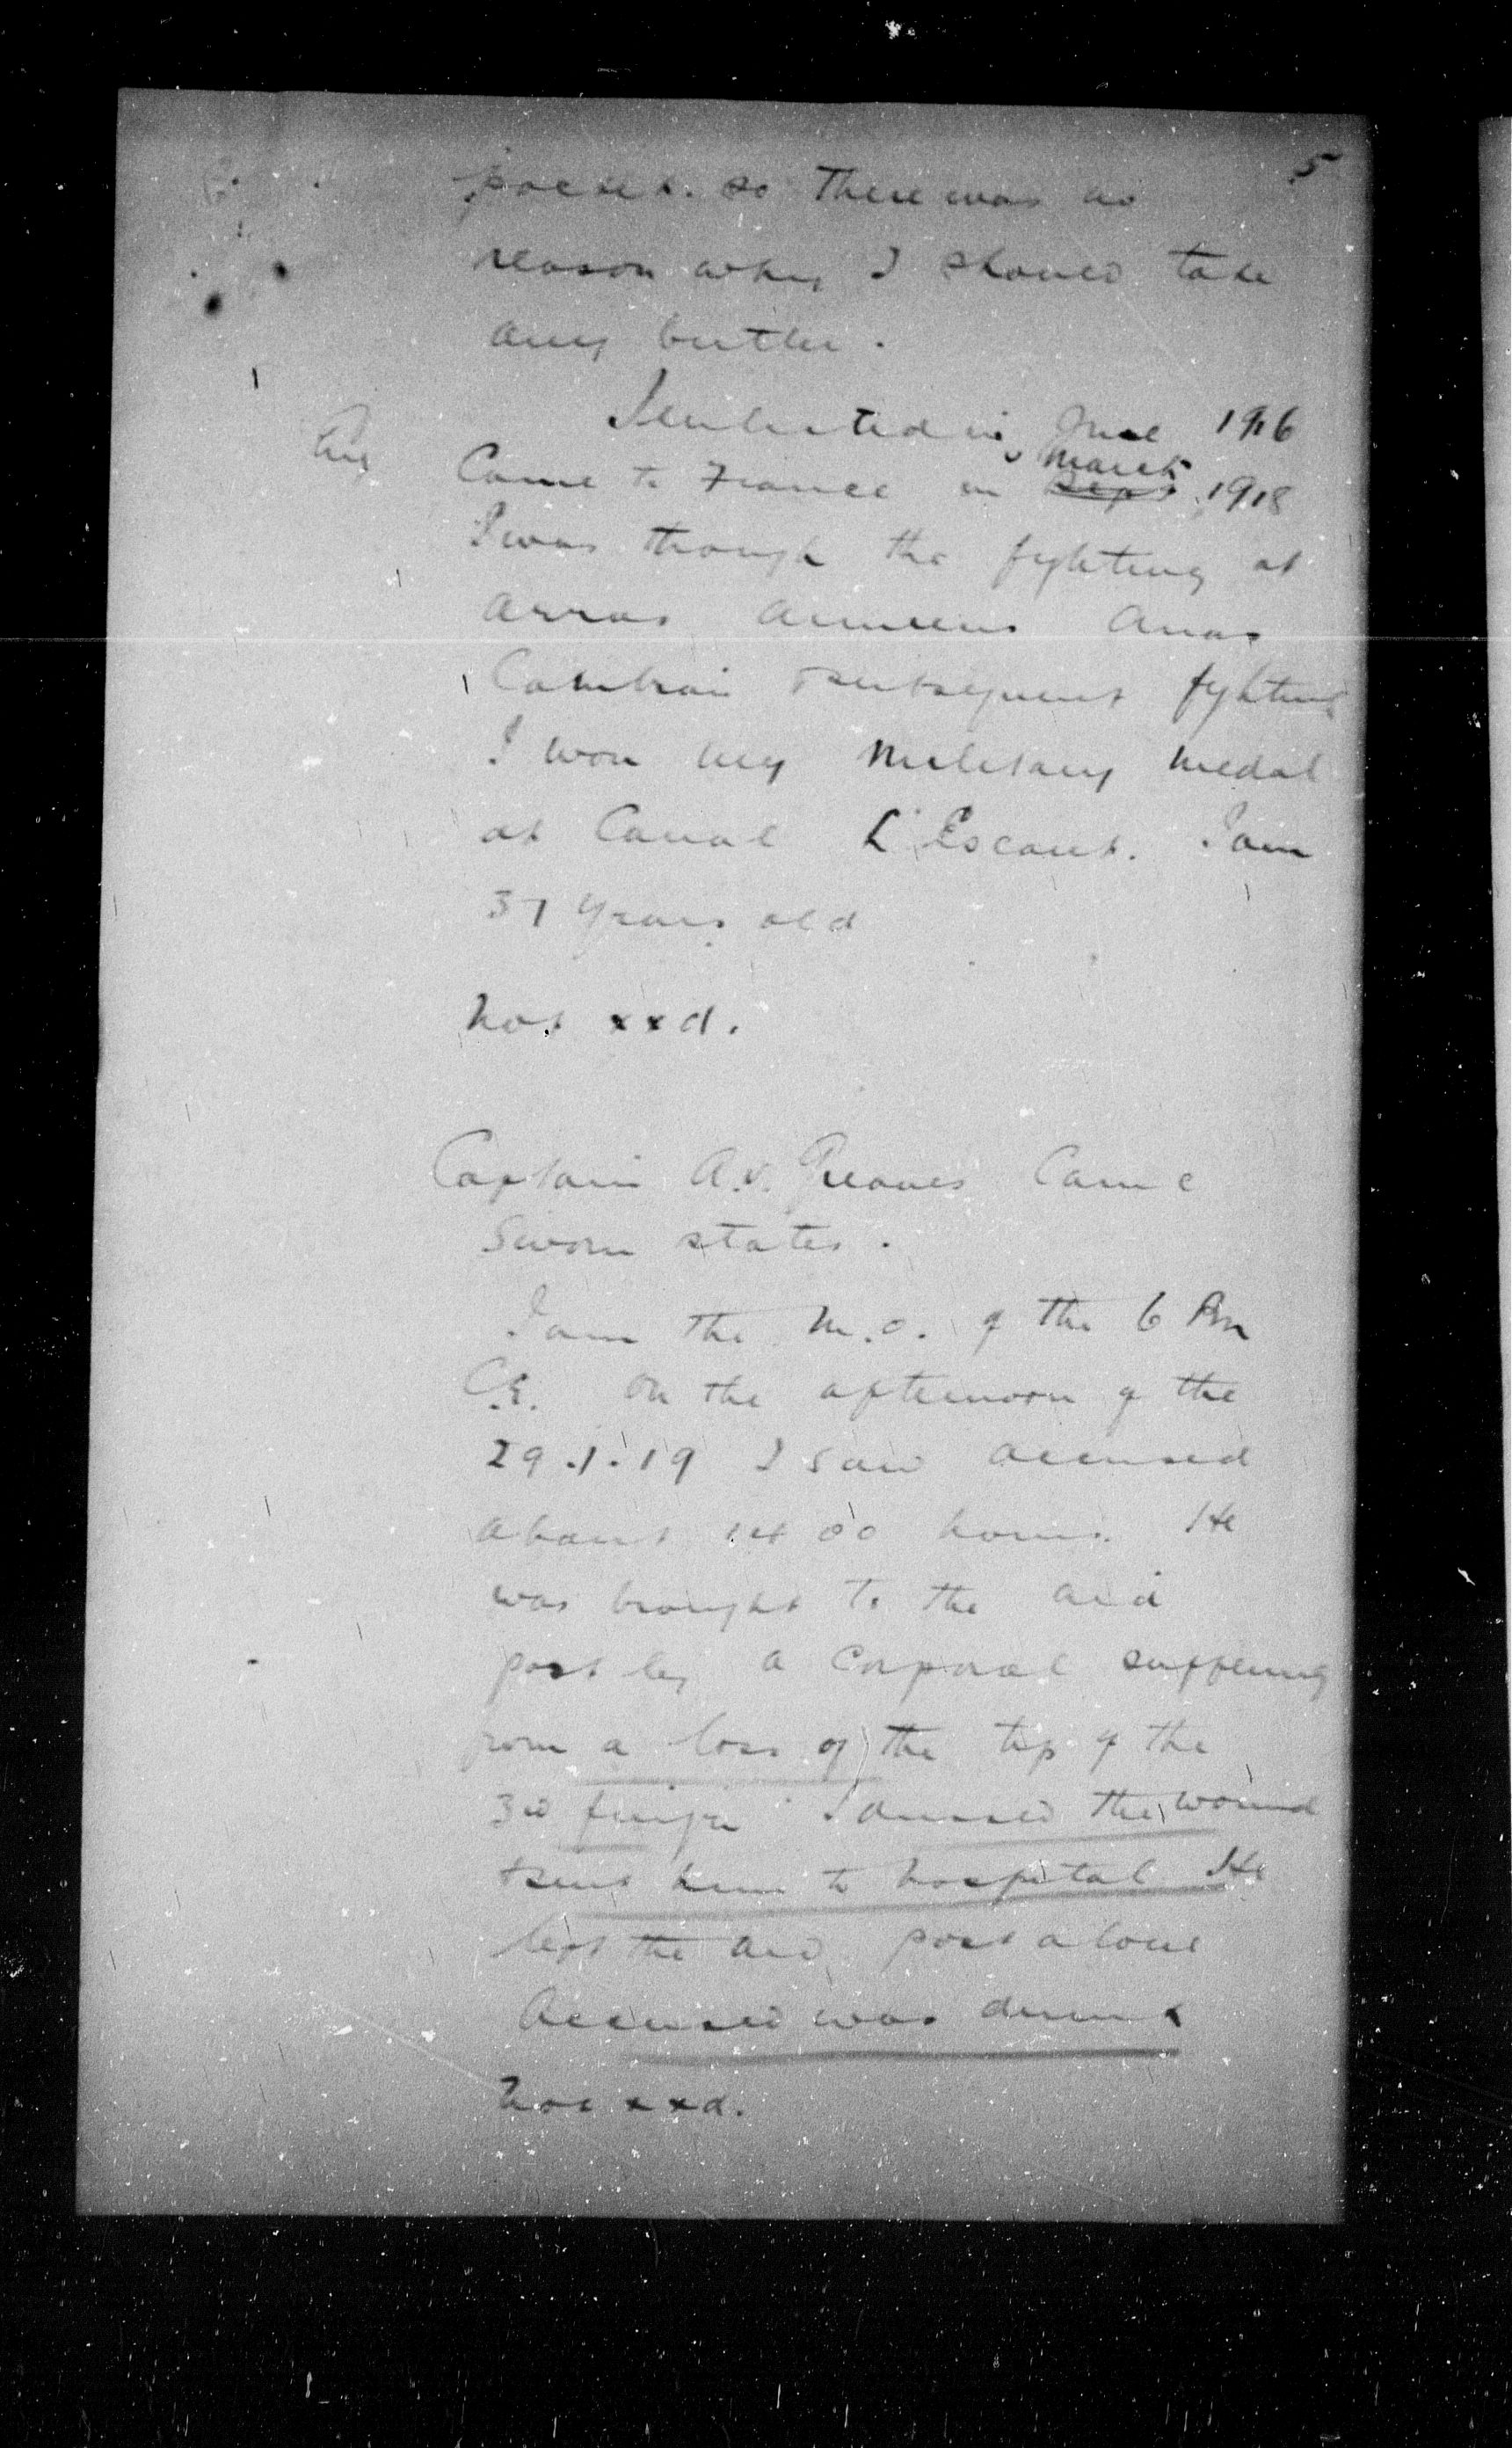 5
pocket. so there was no
reason why I should take
any butter.
I enlisted in June 1916
Came to France in March Sept 1918
I was through the fighting at
Arras Amiens Arras
Cambrai & subsequent fighting
I won my Military medal
at Canal L'Escaut. I am
37 years old
not xxd.
Captain A.V. Greaves Came
Sworn states.
I am the M.O. of the 6 Bn
C.E. On the afternoon of the
29.1.19 I saw accused
about 14 00 hours. He
was brought to the aid
post by a Corporal suffering
from a loss of the tip of the
3d finger I dressed the wound
& sent him to hospital He
left the aid post alone
Accused was drunk
Not xxd.